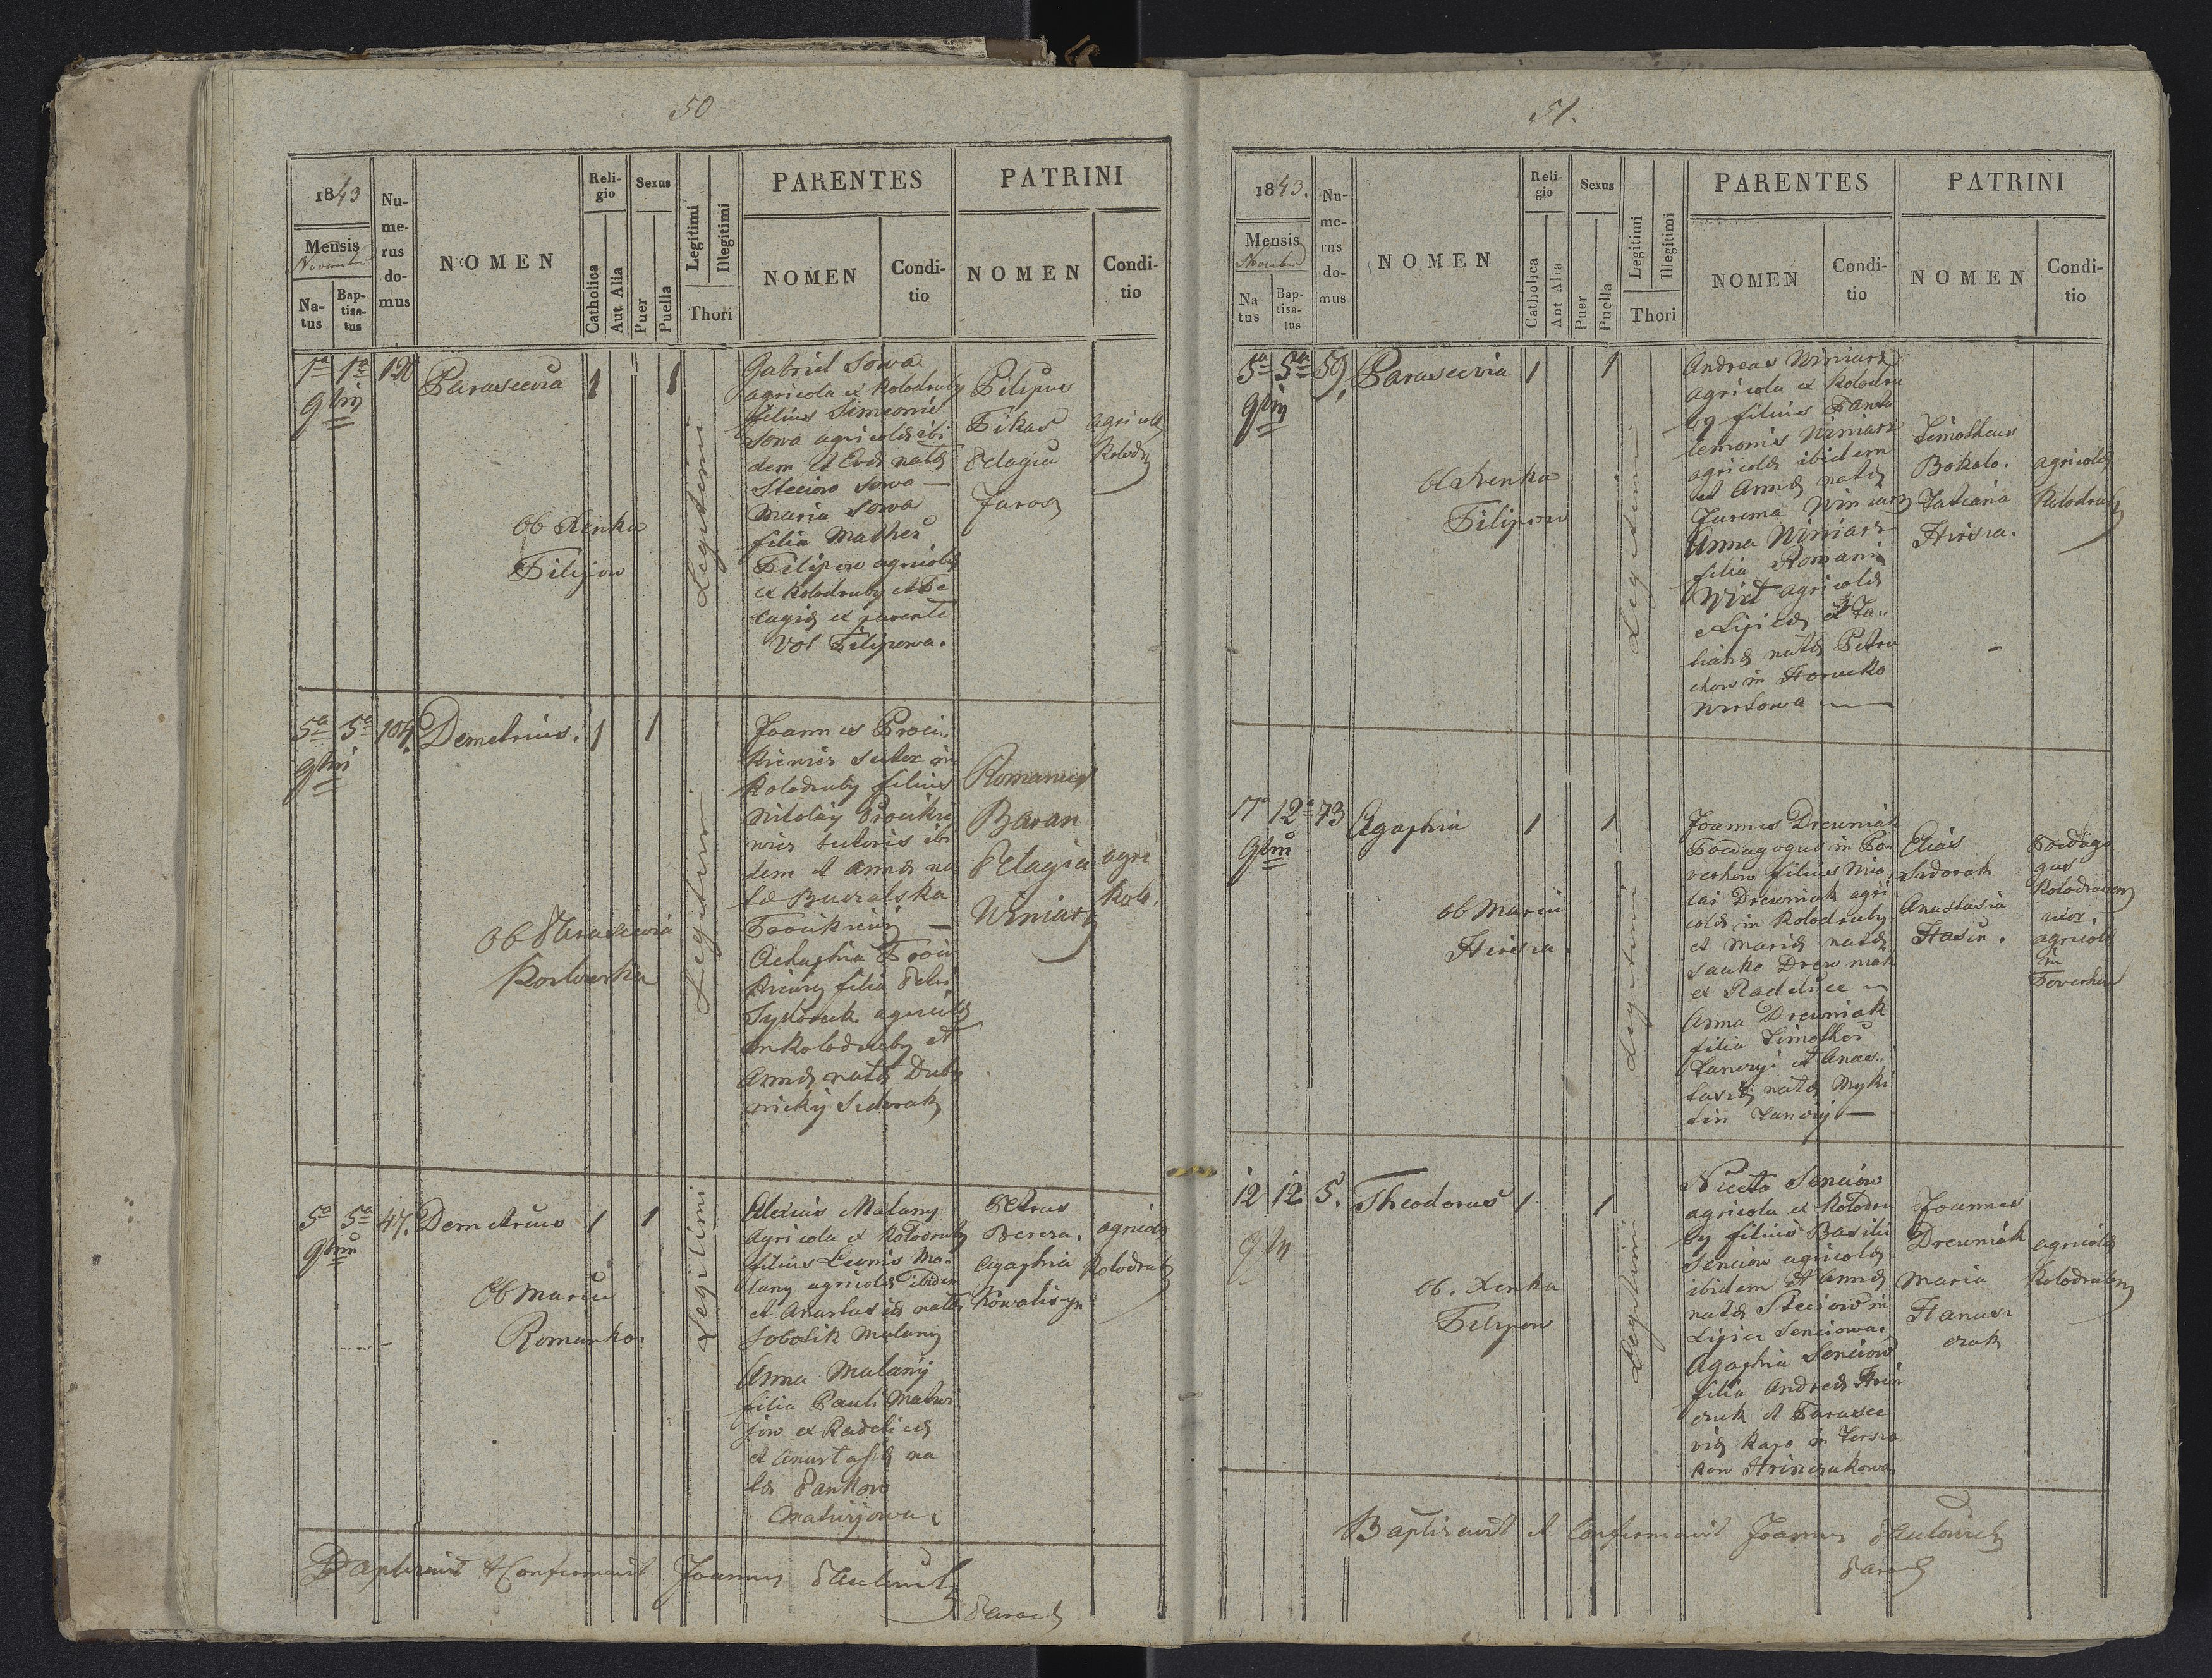 50
1843
Mensis
Novembri
Natus
Baptisatus
Numerus domus
NOMEN
Religio
Catholica
Aut Alia
Sexus
Puer
Puella
Legitimi
Illegitimi
Thori
PARENTES
NOMEN
Conditio
PATRINI
NOMEN
Conditio
1a 1a 120
9bris
Parascevia
1 1
Ob Xenka
Filipow
Legitimi
Gabriel Sowa
agricola ex Kolodruby
filius Simeonis
Sowa agricolæ ibi
dem et Evæ natæ
Steciow Sowa
Maria Sowa
filia Mathei
Filipow agricolæ
ex Kolodruby et Pe
lagiæ ex parente
Filipowa.
Filipus
Fikas
Pelagia
Jaros
agricolæ
Kolodr
5a 5a 104.
9bris
Demetrius.
1 1
Ob Parascevia
Legitimi
Joannes Procu
kiewicz sutor in
Kolodruby filius
Nikolay
wicz sutoris ibi
dem et Annæ na
tæ
filia
agricolæ
in Kolodruby et
Annæ natæ Dub
nickij Siderak
Romanus
Baran
Pelagia
Winiarz
agri
Kolo.
5a 5a 47.
9bris
Demetrius
1 1
Ob Maria
Romanko.
Legitimi
Alexius Malany
agricola ex Kolodruby
filius Leonis Ma
lany agricolæ ibidem
et Anastasiæ natæ
Sobolik Malany
Anna Malanij
filia Pauli Matwi
jow ex Radelicz
et Anastasiæ na
tæ Pankow
Matwijowa
Petrus
Bereza.
Agaphia
Kowalisyn
agricolæ
Kolodruby
Baptisavit et Confirmavit Joannes
Paroch
51.
1843.
Mensis
Novembri
Natus
Baptisatus
Numerus domus
NOMEN
Religio
Catholica
Aut Alia
Sexus
Puer
Puella
Legitimi
Illegitimi
Thori
PARENTES
NOMEN
Conditio
PATRINI
NOMEN
Conditio
5a 5a 59,
9bris
Parascevia
1 1
Filipow
Legitimi
Andreas Winiarz
agricola ex Kolodru
by filius Panta
lemonis Winiarz
agricolæ ibidem
et Annæ natæ
Jurema Winiarz
Anna Winiarz
filia Romani
Wixt agricolæ
et Ta
tianæ natæ Petru
chow in Horucko
Timotheus
Bokalo.
Tatiana
Hirsza.
agricolæ
Kolodruby
12a 73
9bris
Agaphia
1 1
Ob Maria
Hirsza.
Legitimi
Joannes Drewniak
Pædagogus in Po
verhow filius Nico
lai Drewniak agri
colæ in Kolodruby
et Mariæ natæ
Sauko Drewniak
ex Radelice
Anna Drewniak
filia Timothei
et Anas
tasiæ natæ Myki
Elias
Sidorak
Anastasia
Hasin.
Pædago
gus
Kolodruby
uxor.
agricolæ
in
Poverhow
12 12 5.
9br
Theodorus
1 1
Ob. Xenka
Filipow
Legitimi
Niceta Senciow
agricola ex Kolodru
by filius Basilii
Senciow agricolæ
ibidem et Annæ
natæ Steciow in
Lipice Senciowa
Agaphia Senciow
filia Andreæ Hrin
czuk et Parasce
viæ
kow Hrinczukowa
Joannes
Drewniak
Maria
Hanus
czak
agricolæ
Kolodruby
Baptisavit et Confirmavit Joannes
Paroch